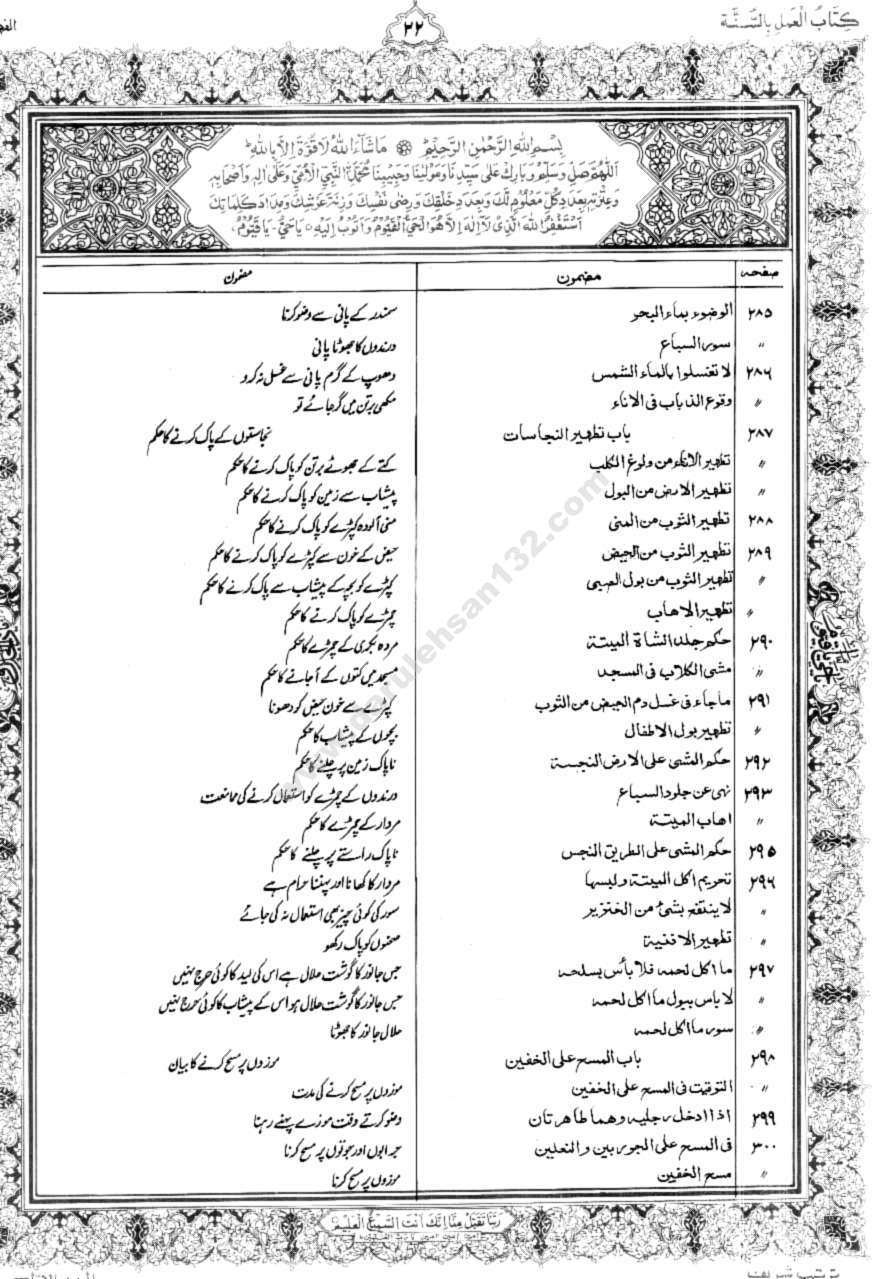 كِتَابُ الْعَمَلِ بِالسُّنَّة
۲۲
بِسْمِ اللهِ الرَّحْمٰنِ الرَّحِيْمِ مَا شَآءَ اللهُ لَا قُوَّةَ اِلَّا بِاللهِ
اَللّٰهُمَّ صَلِّ وَسَلِّمْ وَبَارِكْ عَلٰى سَيِّدِنَا وَمَوْلٰنَا وَحَبِيْبِنَا مُحَمَّدِ النَّبِيِّ الْاُمِّيِّ وَعَلٰى اٰلِهٖ وَاَصْحَابِهٖ
وَعِتْرَتِهٖ بِعَدَدِ كُلِّ مَعْلُوْمٍ لَّكَ وَبِعَدَدِ خَلْقِكَ وَرِضٰى نَفْسِكَ وَزِنَةَ عَرْشِكَ وَمِدَادَ كَلِمَاتِكَ
اَسْتَغْفِرُ اللهَ الَّذِىْ لَآ اِلٰهَ اِلَّا هُوَ الْحَيُّ الْقَيُّوْمُ وَاَتُوْبُ اِلَيْهِ يَا حَيُّ يَا قَيُّوْمُ
صفحہ مضمون مضمون
۲۸۵ الوضوء بماء البحر سمندر کے پانی سے وضو کرنا
〃 سور السباع درندوں کا جھوٹا پانی
۲۸۶ لا تغتسلوا بالماء الشمس دھوپ کے گرم پانی سے غسل نہ کرو
〃 وقوع الذباب فی الاناء مکھی برتن میں گر جائے تو
۲۸۷ باب تطهیر النجاسات نجاستوں کے پاک کرنے کا حکم
〃 تطهیر الاناء من ولوغ الکلب کتے کے جھوٹے برتن کو پاک کرنے کا حکم
〃 تطهیر الارض من البول پیشاب سے زمین کو پاک کرنے کا حکم
۲۸۸ تطهیر الثوب من المنی منی آلودہ کپڑے کو پاک کرنے کا حکم
۲۸۹ تطهیر الثوب من الحیض حیض کے خون سے کپڑے کو پاک کرنے کا حکم
〃 تطهیر الثوب من بول الصبی کپڑے کو بچہ کے پیشاب سے پاک کرنے کا حکم
〃 تطهیر الاهاب چمڑے کو پاک کرنے کا حکم
۲۹۰ حکم جلد الشاة المیتة مردہ بکری کے چمڑے کا حکم
〃 مشی الکلاب فی المسجد مسجد میں کتوں کے آ جانے کا حکم
۲۹۱ ماجاء فی غسل دم الحیض من الثوب کپڑے سے خون حیض کو دھونا
〃 تطهیر بول الاطفال بچوں کے پیشاب کا حکم
۲۹۲ حکم المشی علی الارض النجسة ناپاک زمین پر چلنے کا حکم
۲۹۳ نهی عن جلود السباع درندوں کے چمڑے کو استعمال کرنے کی ممانعت
〃 اهاب المیتة مردار کے چمڑے کا حکم
۲۹۵ حکم المشی علی الطریق النجس ناپاک راستے پر چلنے کا حکم
۲۹۶ تحریم اکل المیتة ولبسها مردار کا کھانا اور پہننا حرام ہے
〃 لا ینتفع بشیٔ من الخنزیر سور کی کوئی چیز بھی استعمال نہ کی جائے
〃 تطهیر الافنیة صحنوں کو پاک رکھو
۲۹۷ ما اکل لحمه فلا بأس بسلحه جس جانور کا گوشت حلال ہے اس کی لید کا کوئی حرج نہیں
〃 لا باس ببول ما اکل لحمه جس جانور کا گوشت حلال ہو اس کے پیشاب کا کوئی حرج نہیں
〃 سور ما اکل لحمه حلال جانور کا جھوٹا
۲۹۸ باب المسح علی الخفین موزوں پر مسح کرنے کا بیان
〃 التوقیت فی المسح علی الخفین موزوں پر مسح کرنے کی مدت
۲۹۹ اذا ادخل رجلیه وهما طاهرتان وضو کرتے وقت موزے پہنے رہنا
۳۰۰ فی المسح علی الجوربین والنعلین جرابوں اور جوتوں پر مسح کرنا
〃 مسح الخفین موزوں پر مسح کرنا
رَبَّنَا تَقَبَّلْ مِنَّا اِنَّكَ اَنْتَ السَّمِيْعُ الْعَلِيْمُ
www.darulehsan132.com